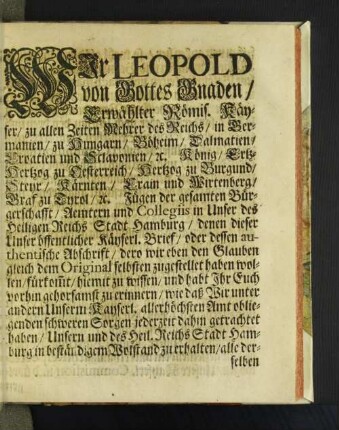 WIr LEOPOLD
von Gottes Gnaden /
Erwählter Römis. Käy-
ser / zu allen Zeiten Mehrer des Reichs / in Ger-
manien / zu Hungarn / Böheim / Dalmatien /
Croatien und Sclavonien / ꝛc. König / Ertz-
Hertzog zu Oesterreich / Hertzog zu Burgund /
Steyr / Kärnten / Crain und Wirtenberg /
Graf zu Tyrol / ꝛc. Fügen der gesamten Bür-
gerschafft / Aemtern und Collegiis in Unser des
Heiligen Reichs Stadt Hamburg / denen dieser
Unser öffentlicher Käyserl. Brief / oder dessen au-
thentische Abschrift / dero wir eben den Glauben
gleich dem Original selbsten zugestellet haben wol-
len / fürkom̃t / hiemit zu wissen / und habt Ihr Euch
vorhin gehorsamst zu erinnern / wie daß Wir unter
andern Unserm Kayserl. allerhöchsten Amt oblie-
genden schweren Sorgen jederzeit dahin getrachtet
haben / Unsern und des Heil. Reichs Stadt Ham-
burg in beständigem Wolstand zu erhalten / alle der-
selben